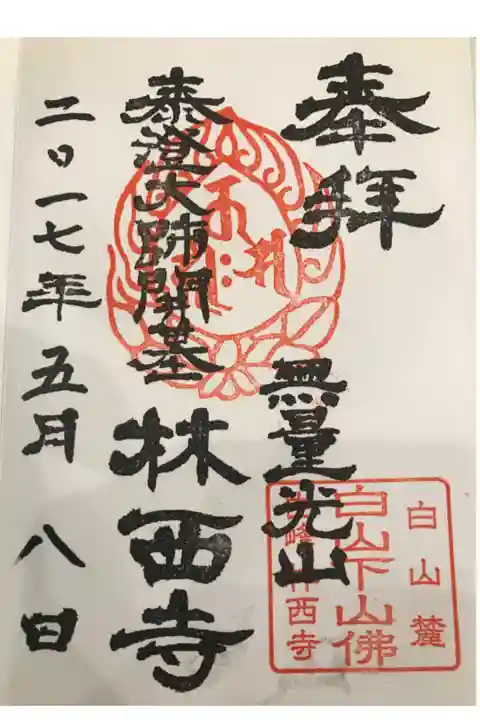 奉拝
無量光山
泰澄大師開基
林西寺
二〇一七年五月八日
白山麓
白山下山佛
白峰林西寺